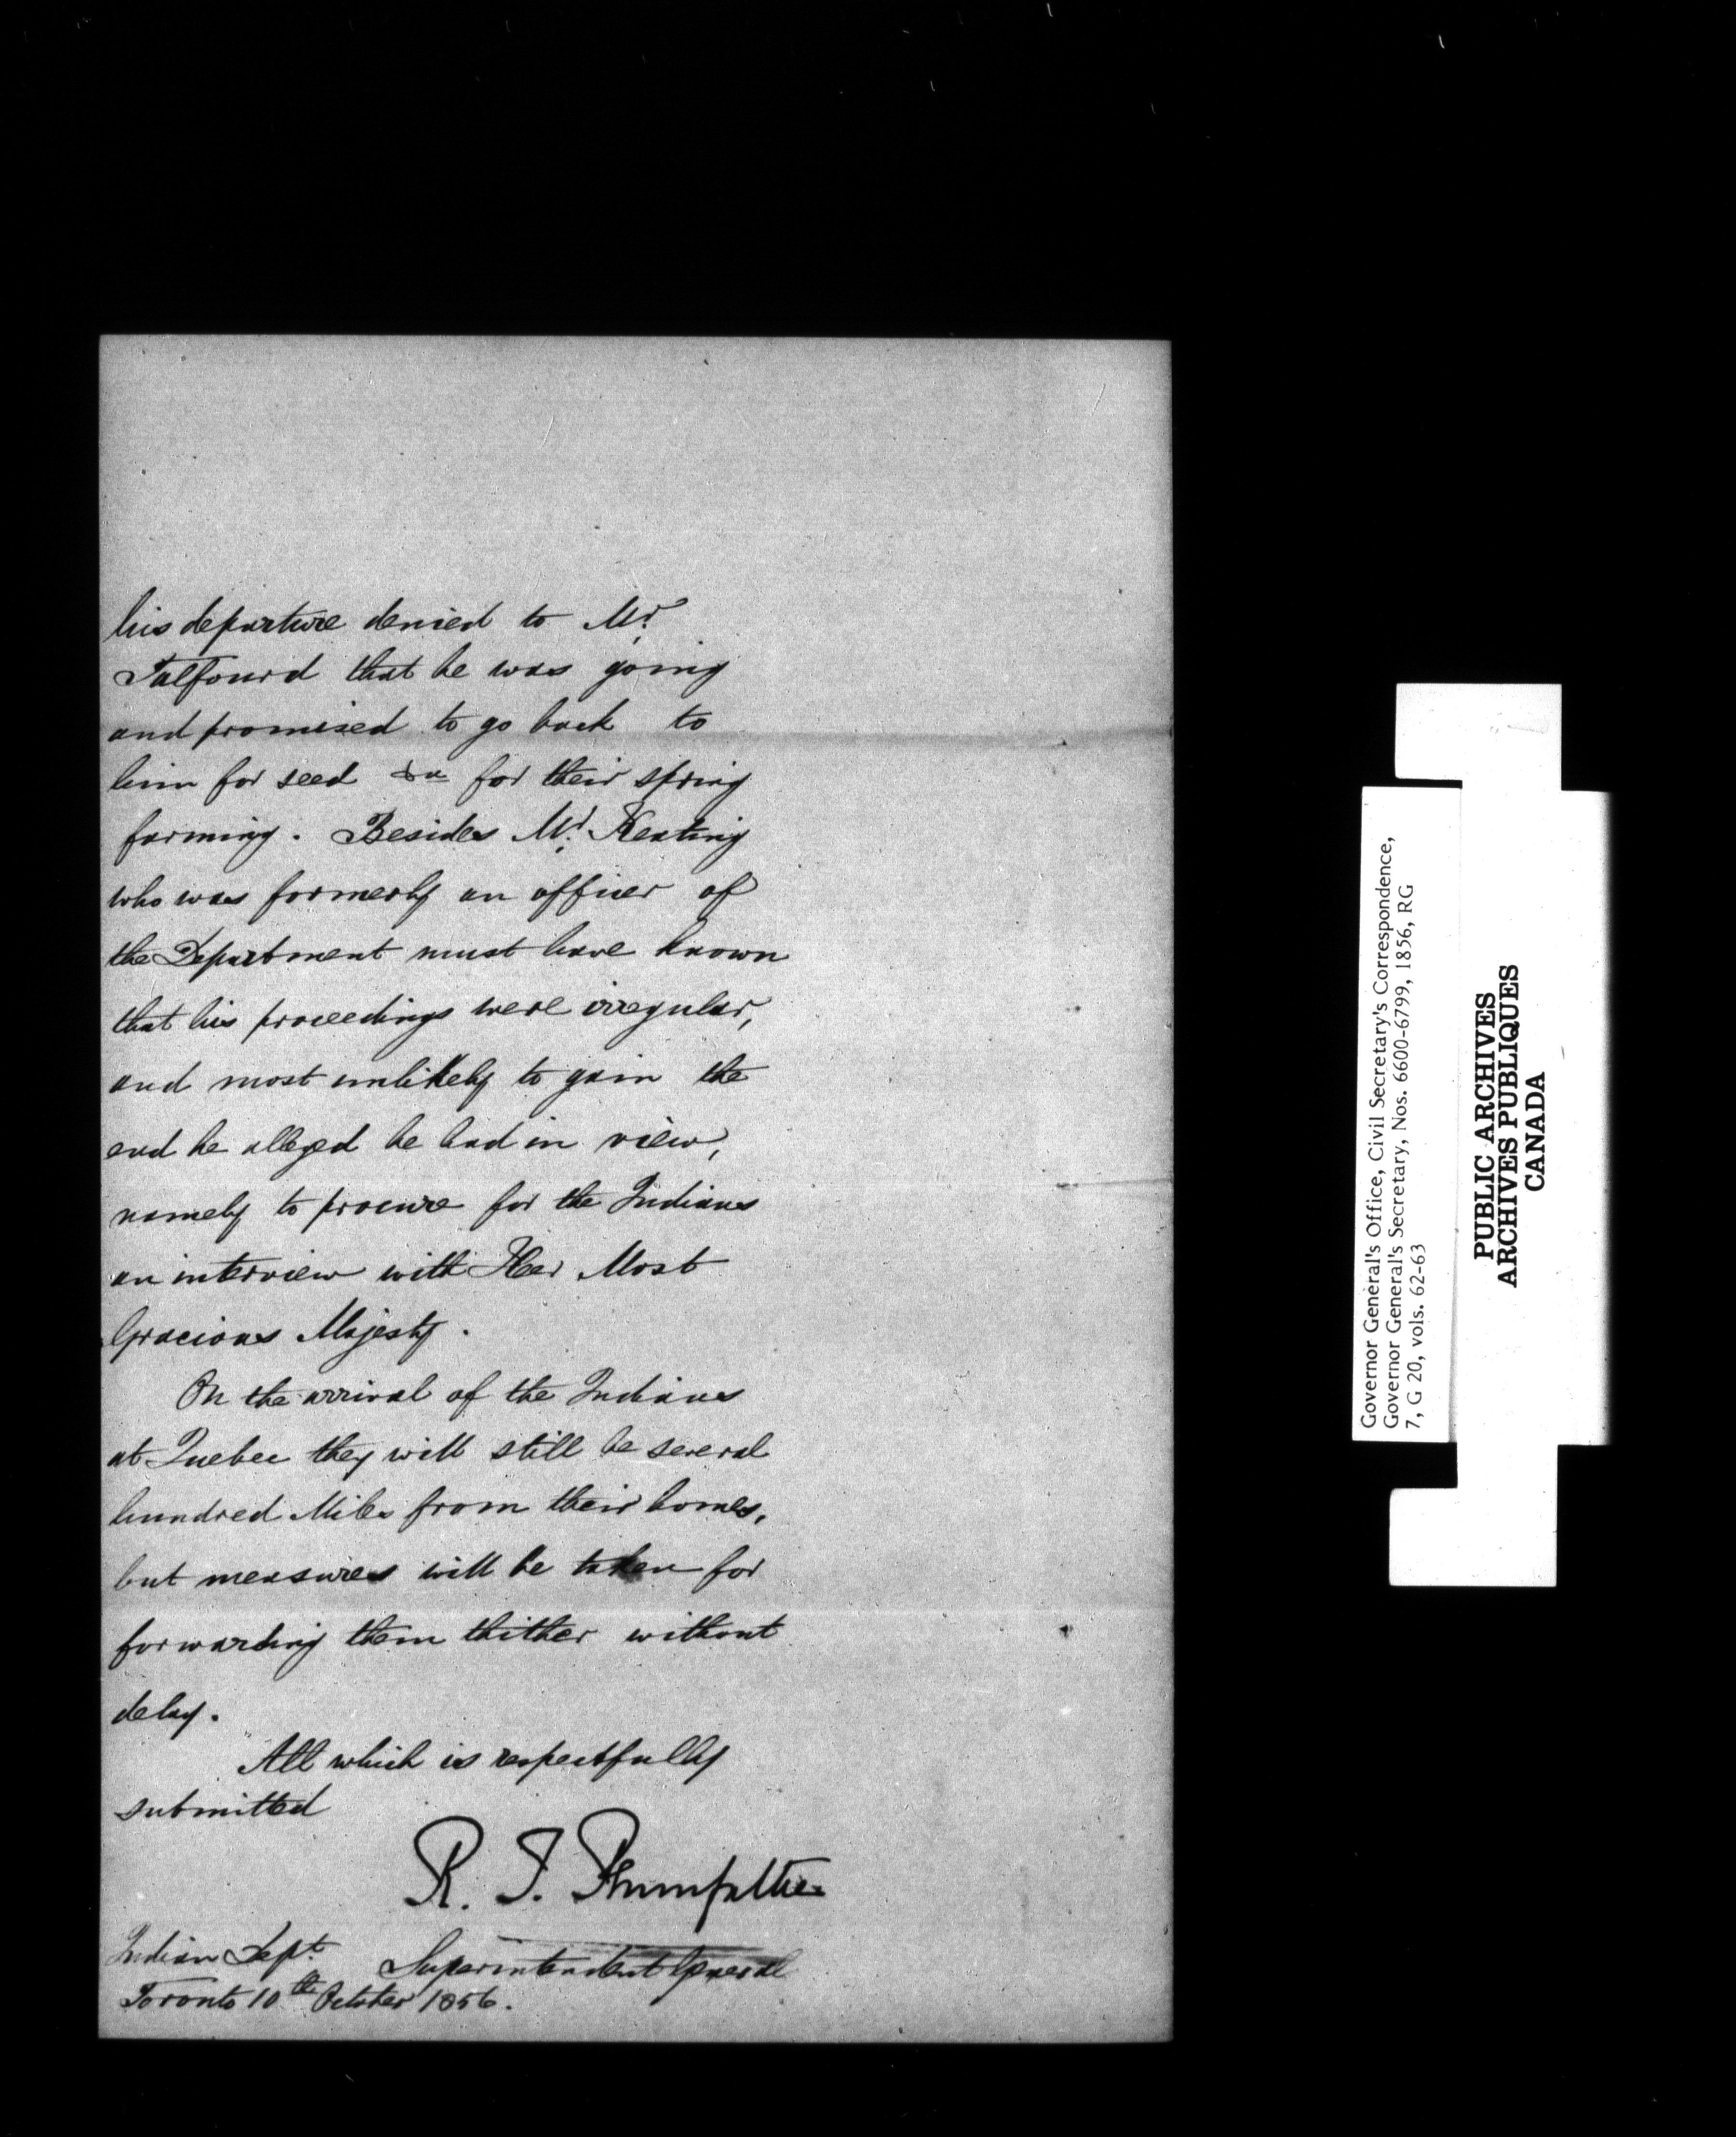 his departure denied to Mr.
Talfourd that he was going
and promised to go back to
him for seed &c for their spring
farming. Besides Mr. Keating
who was formerly an officer of
the Department must have known
that his proceedings were irregular,
and most unlikely to gain the
end he alleged he had in view,
namely to procure for the Indians
an interview with Her Most
Gracious Majesty.
On the arrival of the Indians
at Quebec they will still be several
hundred Miles from their homes,
but measures will be taken for
forwarding them thither without
delay.
All which is respectfully
submitted
R. T. Pennefather
Superintendent General
Indian Dept.
Toronto 10th October 1856.
Governor General's Office, Civil Secretary's Correspondence,
Governor General's Secretary, Nos. 6600-6799, 1856, RG
7, G 20, vols. 62-63
PUBLIC ARCHIVES
ARCHIVES PUBLIQUES
CANADA